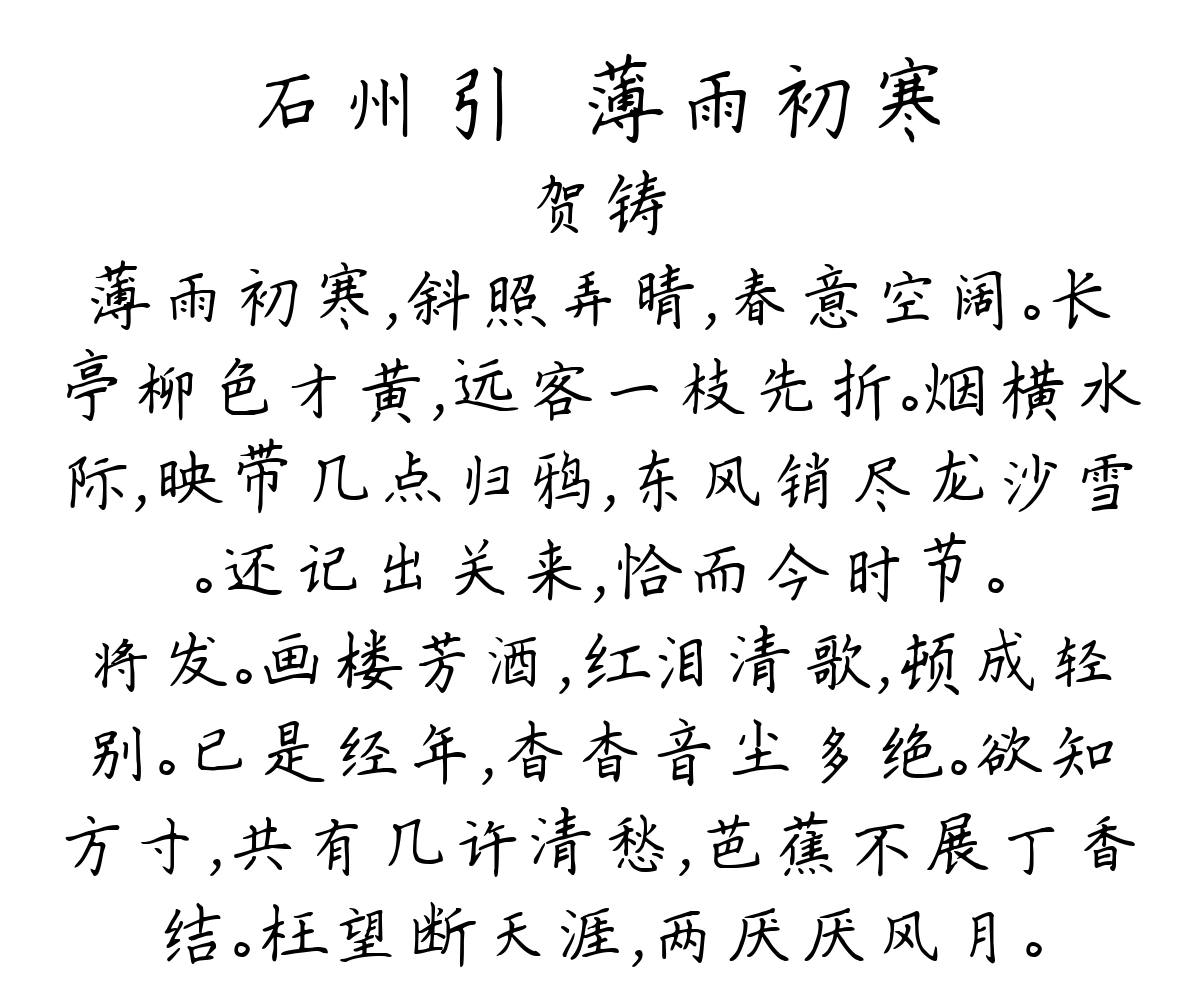 石州引 薄雨初寒
贺铸
薄雨初寒,斜照弄晴,春意空阔。长
亭柳色才黄,远客一枝先折。烟横水
际,映带几点归鸦,东风销尽龙沙雪
。还记出关来,恰而今时节。
将发。画楼芳酒,红泪清歌,顿成轻
别。已是经年,杳杳音尘多绝。欲知
方寸,共有几许清愁,芭蕉不展丁香
结。枉望断天涯,两厌厌风月。